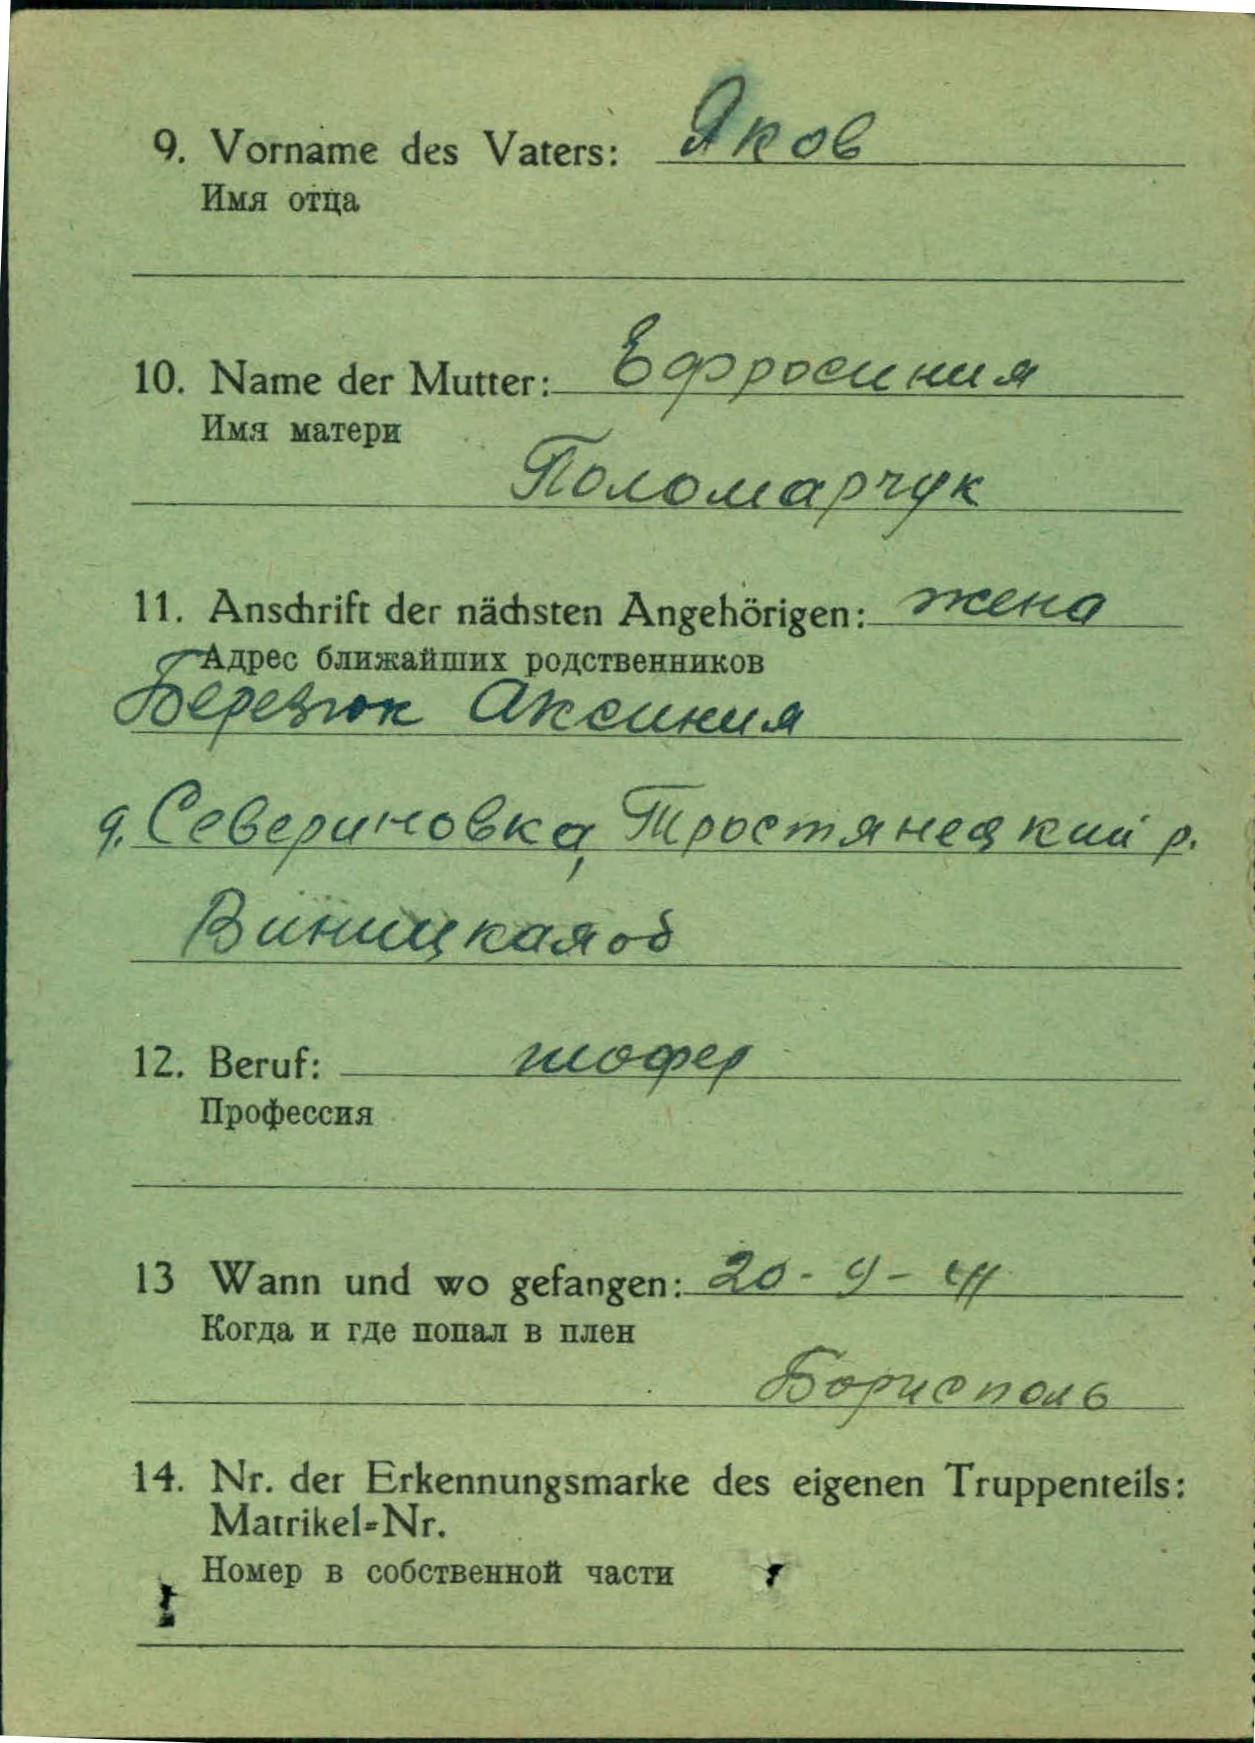 9. Vorname des Vaters: Яков
Имя отца
10. Name der Mutter: Ефросиния
Имя матери
Поломарчук
11. Anschrift der nächsten Angehörigen: жена
Адрес ближайших родственников
Березюк Аксиния
д. Севериновка, Тростянецкий р.
Виницкая об
12. Beruf: шофер
Профессия
13 Wann und wo gefangen: 20-9-41
Когда и где попал в плен
Борисполь
14. Nr. der Erkennungsmarke des eigenen Truppenteils:
Matrikel-Nr.
Номер в собственной части